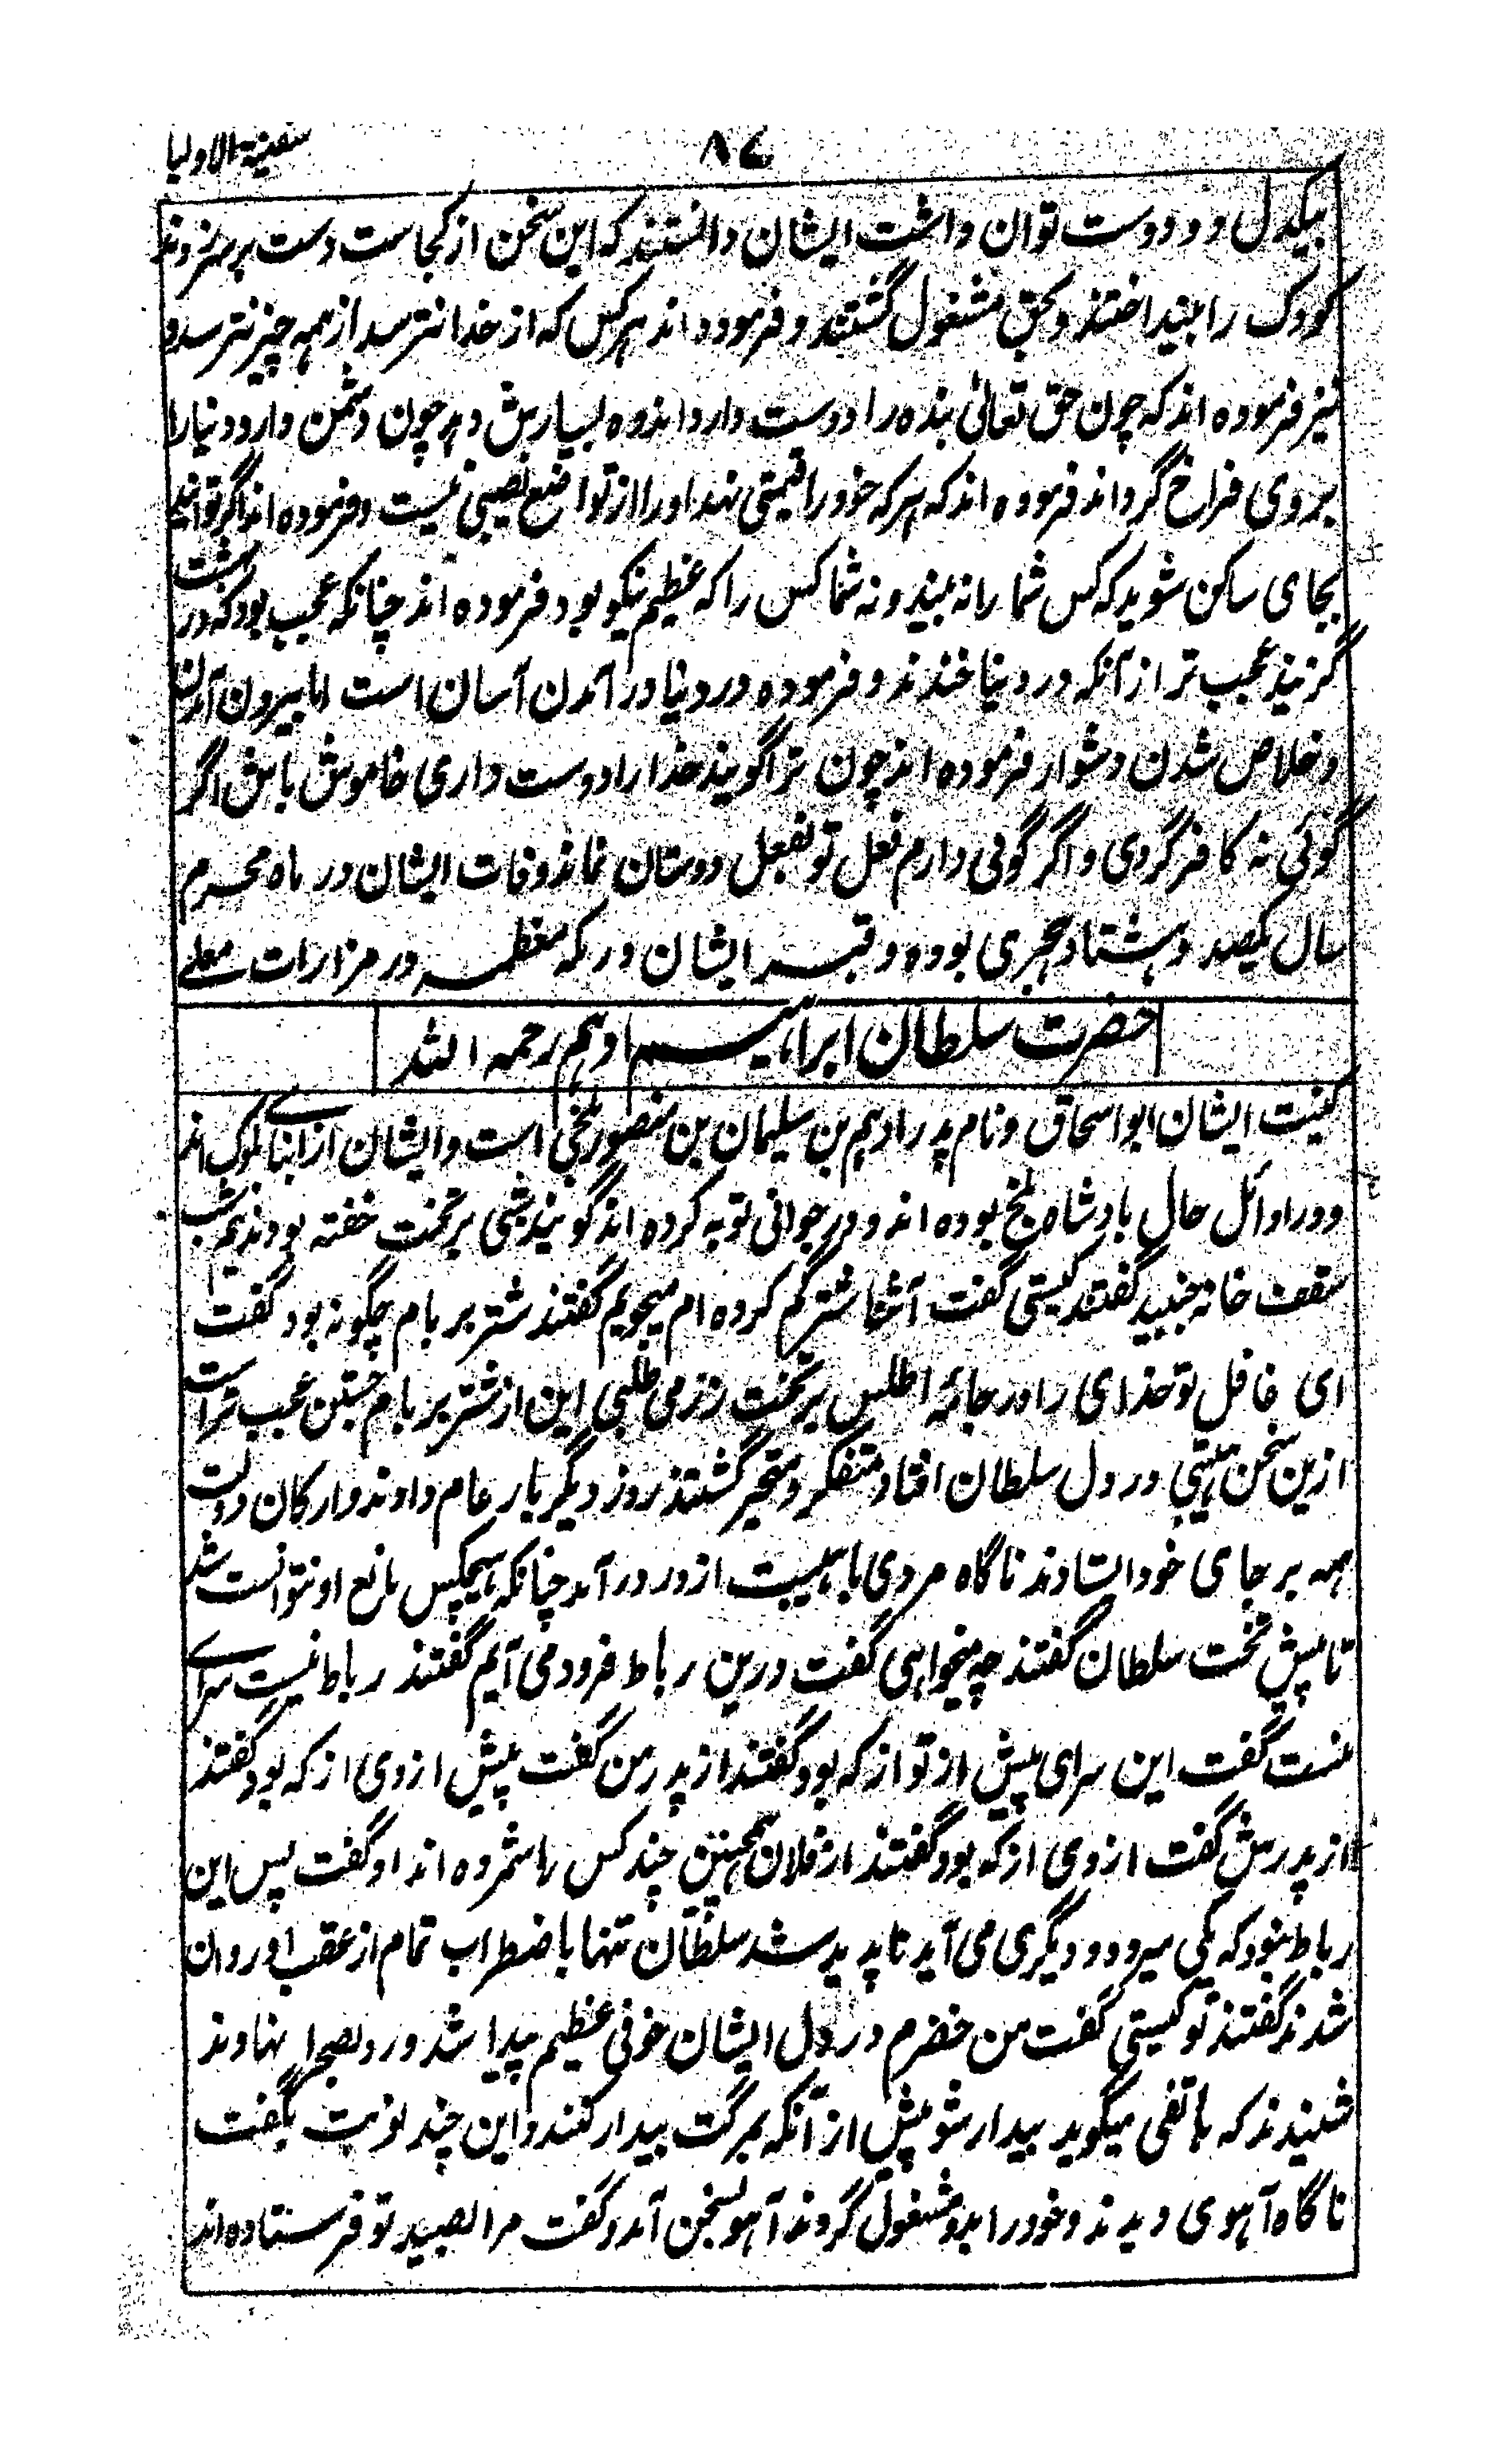 سفینة الاولیا
۸۷
بیکدل دو دوست توان داشت ایشان دانستند که این سخن از کجاست دست بر سر زدند
کودک را بینداختند و بحق مشغول گشتند و فرموده اند هر کس که از خدا نترسد از همه چیز نترسد و
نیز فرموده اند که چون حق تعالیٰ بنده را دوست دارد اندوه بسیارش دهد چون دشمن دارد دنیا را
بروی فراخ گرداند فرموده اند که هر که خود را قیمتی نهد او را از تواضع نصیبی نیست و فرموده اند اگر توانید
بجای ساکن شوید که کس شما را نه بیند و نه شما کس را که عظیم نیکو بود فرموده اند چنانکه عجب بود که در بهشت
گریند عجب تر از آنکه در دنیا خندند و فرموده در دنیا در آمدن آسان است اما بیرون آمدن
و خلاص شدن دشوار فرموده اند چون ترا گویند خدا را دوست داری خاموش باش اگر
گوئی نه کافر گردی و اگر گوئی دارم فعل تو بفعل دوستان نماند وفات ایشان در ماه محرم
سال یکصد و هشتاد هجری بوده و قبر ایشان در مکه معظمه در مزارات معلے
حضرت سلطان ابراهیم ادهم رحمه الله
کنیت ایشان ابو اسحاق و نام پدر ادهم بن سلیمان بن منصور بلخی است و ایشان از ابنائے ملوک اند
و در اوائل حال بادشاه بلخ بوده اند و در جوانی توبه کرده اند گویند شبی بر تخت خفته بودند نیم شب
سقف خانه جنبید گفتند کیستی گفت آشنا شتر گم کرده ام میجویم گفتند شتر بر بام چگونه بود گفت
ای غافل تو خدای را در جامهٔ اطلس بر تخت زر می طلبی این از شتر بر بام جستن عجب تر است
ازین سخن هیبتی در دل سلطان افتاد متفکر و متحیر گشتند روز دیگر بار عام دادند و ارکان دولت
همه بر جای خود استادند ناگاه مردی با هیبت از در در آمد چنانکه هیچکس مانع او نتوانست شد
تا پیش تخت سلطان گفتند چه میخواهی گفت درین رباط فرود می آیم گفتند رباط نیست سرای
منست گفت این سرای پیش از تو از که بود گفتند از پدر من گفت پیش از وی از که بود گفتند
از پدرش گفت از وی از که بود گفتند از فلان همچنین چند کس را شمرده اند او گفت پس این
رباط بود که یکی میرود و دیگری می آید ناپدید شد سلطان تنها با ضطراب تمام از عقب او روان
شدند گفتند تو کیستی گفت من خضرم در دل ایشان خوفی عظیم پیدا شد و رو بصحرا نهادند
شنیدند که هاتفی میگوید بیدار شو پیش از آنکه بمرگت بیدار کنند و این چند نوبت بگفت
ناگاه آهوی دیدند و خود را بدو مشغول گردند آهو بسخن آمد و گفت مرا بصید تو فرستاده اند